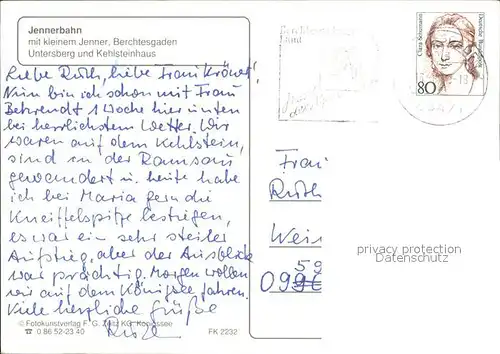 Jennerbahn
mit kleinem Jenner, Berchtesgaden
Untersberg und Kehlsteinhaus
Liebe Ruth, liebe Frau
Nun bin ich schon mit Frau
Behrendt 1 Woche hier unten
bei herrlichstem Wetter. Wir
waren auf dem Kehlstein,
sind in der Ramsau
gewandert u. heute habe
ich bei Maria gern die
Kneiffelspitze bestiegen,
es war ein sehr steiler
Aufstieg, aber der Ausblick
war prächtig. Morgen wollen
wir auf dem Königsee fahren.
Viele herzliche Grüße
© Fotokunstverlag F. G. Zeitz KG, Königssee
☎ 0 86 52-23 40
FK 2232
Berchtesgadener
Land
Clara Schumann
Deutsche Bundespost
80
Frau
Ruth
Wein
59
privacy protection
Datenschutz